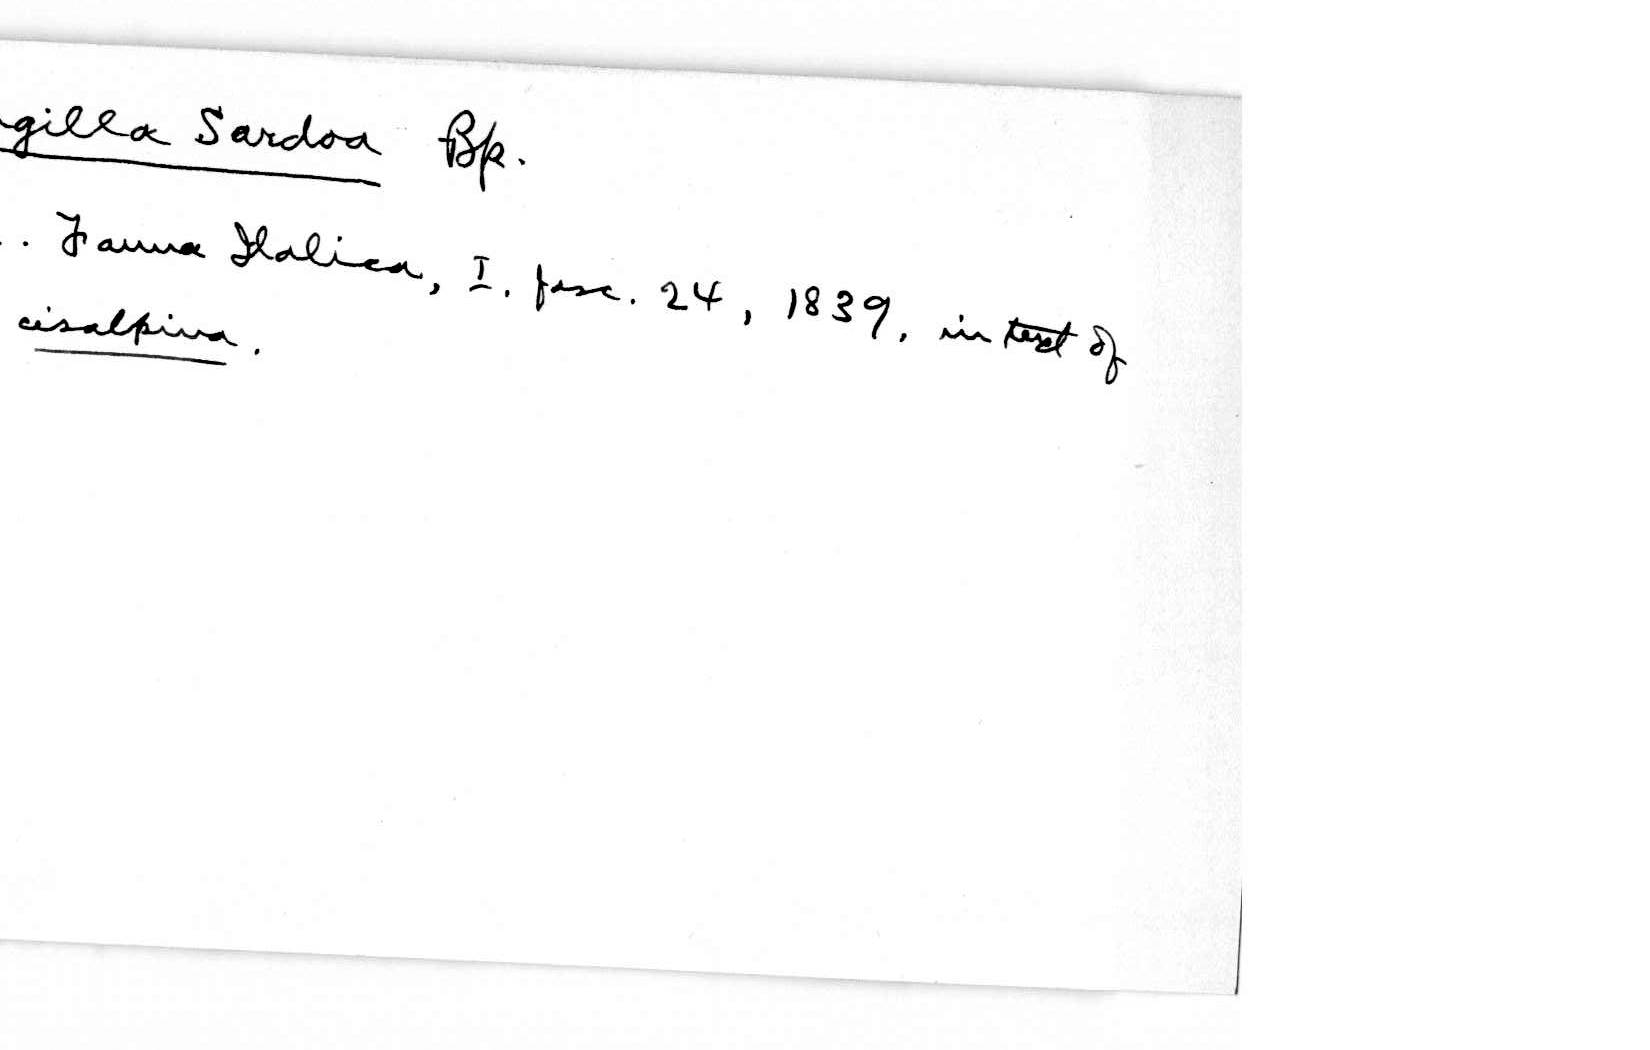 ngilla Sardoa Bp.
.. Fauna Italica, I. fasc. 24, 1839, in text of
cisalpina.